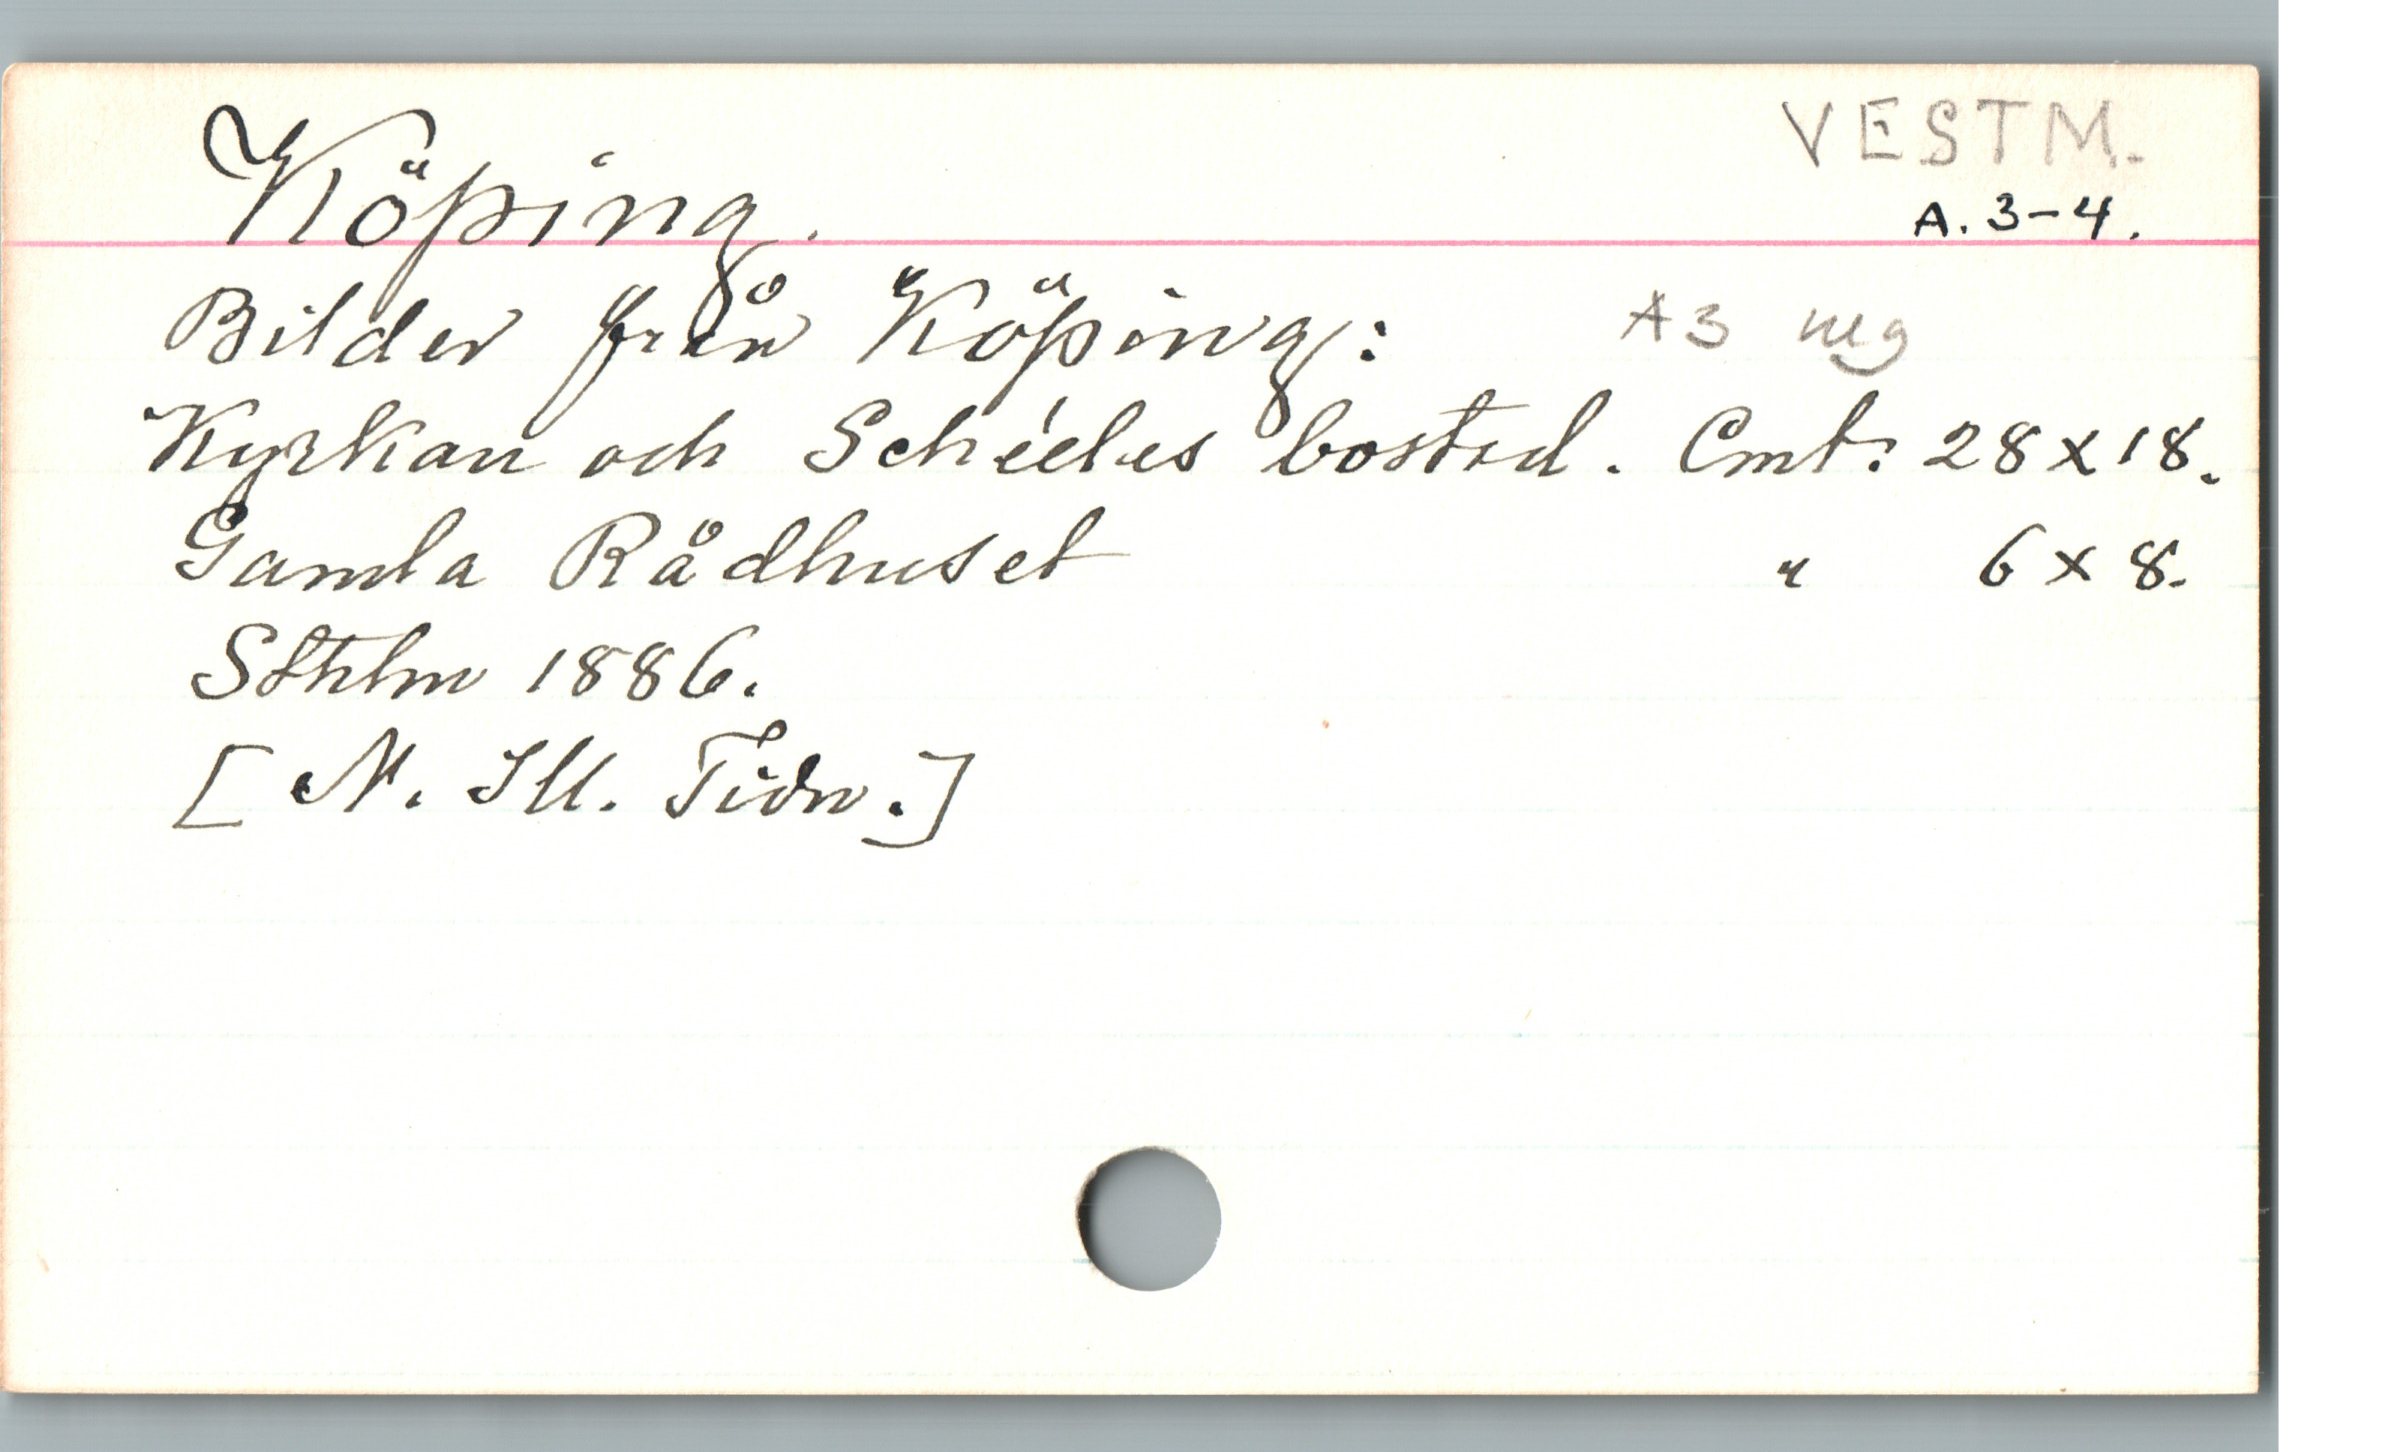 VESTM.
Köping. A. 3-4.
Bilder från Köping: A3
Kyrkan och Schéeles bostad. Cmt. 28 x 18.
Gamla Rådhuset " 6 x 8.
Sthlm 1886.
[N. Ill. Tidn.]